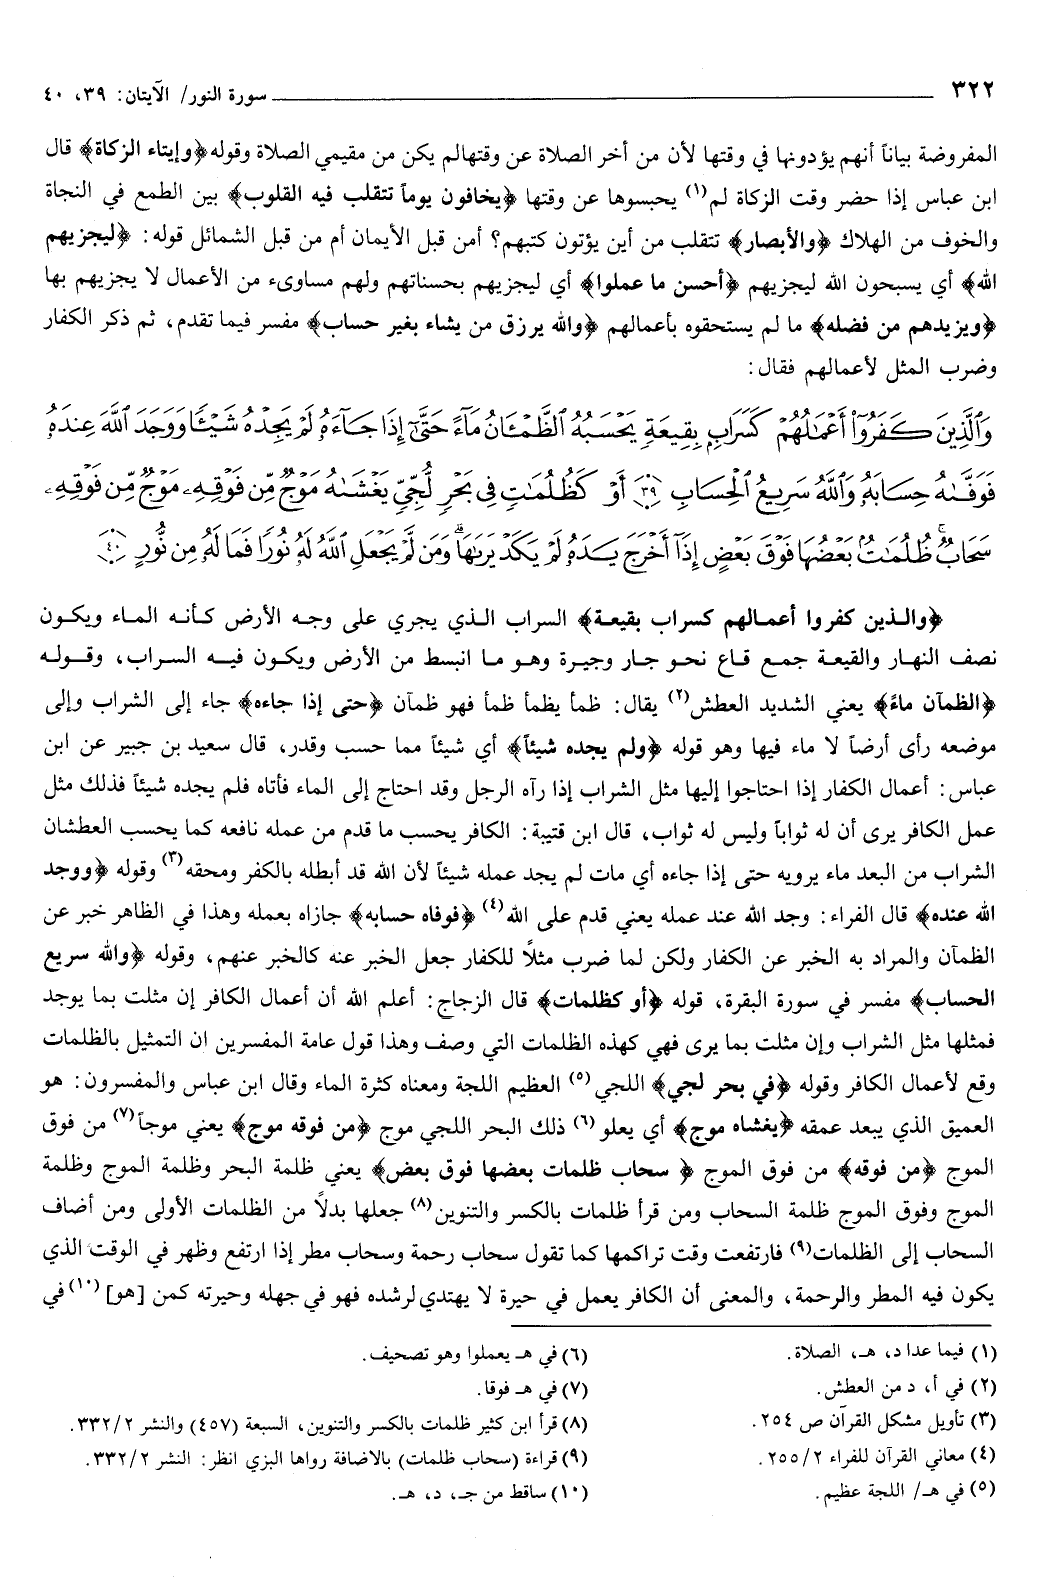 ٣٢٢ ــــــ سورة النور/ الآيتان: ٣٩، ٤٠
المفروضة بياناً أنهم يؤدونها في وقتها لأن من أخر الصلاة عن وقتهالم يكن من مقيمي الصلاة وقوله ﴿وإيتاء الزكاة﴾ قال
ابن عباس إذا حضر وقت الزكاة لم(١) يحبسوها عن وقتها ﴿يخافون يوماً تتقلب فيه القلوب﴾ بين الطمع في النجاة
والخوف من الهلاك ﴿والأبصار﴾ تتقلب من أين يؤتون كتبهم؟ أمن قبل الأيمان أم من قبل الشمائل قوله: ﴿ليجزيهم
الله﴾ أي يسبحون الله ليجزيهم ﴿أحسن ما عملوا﴾ أي ليجزيهم بحسناتهم ولهم مساوىء من الأعمال لا يجزيهم بها
﴿ويزيدهم من فضله﴾ ما لم يستحقوه بأعمالهم ﴿والله يرزق من يشاء بغير حساب﴾ مفسر فيما تقدم، ثم ذكر الكفار
وضرب المثل لأعمالهم فقال:
وَٱلَّذِينَ كَفَرُوٓا۟ أَعْمَـٰلُهُمْ كَسَرَابٍۭ بِقِيعَةٍ يَحْسَبُهُ ٱلظَّمْـَٔانُ مَآءً حَتَّىٰٓ إِذَا جَآءَهُۥ لَمْ يَجِدْهُ شَيْـًٔا وَوَجَدَ ٱللَّهَ عِندَهُۥ
فَوَفَّىٰهُ حِسَابَهُۥ وَٱللَّهُ سَرِيعُ ٱلْحِسَابِ ﴿٣٩﴾ أَوْ كَظُلُمَـٰتٍ فِى بَحْرٍ لُّجِّىٍّ يَغْشَىٰهُ مَوْجٌ مِّن فَوْقِهِۦ مَوْجٌ مِّن فَوْقِهِۦ
سَحَابٌ ۚ ظُلُمَـٰتٌۢ بَعْضُهَا فَوْقَ بَعْضٍ إِذَآ أَخْرَجَ يَدَهُۥ لَمْ يَكَدْ يَرَىٰهَا ۗ وَمَن لَّمْ يَجْعَلِ ٱللَّهُ لَهُۥ نُورًا فَمَا لَهُۥ مِن نُّورٍ ﴿٤٠﴾
﴿والذين كفروا أعمالهم كسراب بقيعة﴾ السراب الذي يجري على وجه الأرض كأنه الماء ويكون
نصف النهار والقيعة جمع قاع نحو جار وجيرة وهو ما انبسط من الأرض ويكون فيه السراب، وقوله
﴿الظمآن ماءً﴾ يعني الشديد العطش(٢) يقال: ظمأ يظمأ ظمأ فهو ظمآن ﴿حتى إذا جاءه﴾ جاء إلى الشراب وإلى
موضعه رأى أرضاً لا ماء فيها وهو قوله ﴿ولم يجده شيئاً﴾ أي شيئاً مما حسب وقدر، قال سعيد بن جبير عن ابن
عباس: أعمال الكفار إذا احتاجوا إليها مثل الشراب إذا رآه الرجل وقد احتاج إلى الماء فأتاه فلم يجده شيئاً فذلك مثل
عمل الكافر يرى أن له ثواباً وليس له ثواب، قال ابن قتيبة: الكافر يحسب ما قدم من عمله نافعه كما يحسب العطشان
الشراب من البعد ماء يرويه حتى إذا جاءه أي مات لم يجد عمله شيئاً لأن الله قد أبطله بالكفر ومحقه(٣) وقوله ﴿ووجد
الله عنده﴾ قال الفراء: وجد الله عند عمله يعني قدم على الله(٤) ﴿فوفاه حسابه﴾ جازاه بعمله وهذا في الظاهر خبر عن
الظمآن والمراد به الخبر عن الكفار ولكن لما ضرب مثلاً للكفار جعل الخبر عنه كالخبر عنهم، وقوله ﴿والله سريع
الحساب﴾ مفسر في سورة البقرة، قوله ﴿أو كظلمات﴾ قال الزجاج: أعلم الله أن أعمال الكافر إن مثلت بما يوجد
فمثلها مثل الشراب وإن مثلت بما يرى فهي كهذه الظلمات التي وصف وهذا قول عامة المفسرين ان التمثيل بالظلمات
وقع لأعمال الكافر وقوله ﴿في بحر لجي﴾ اللجي(٥) العظيم اللجة ومعناه كثرة الماء وقال ابن عباس والمفسرون: هو
العميق الذي يبعد عمقه ﴿يغشاه موج﴾ أي يعلو(٦) ذلك البحر اللجي موج ﴿من فوقه موج﴾ يعني موجاً(٧) من فوق
الموج ﴿من فوقه﴾ من فوق الموج ﴿ سحاب ظلمات بعضها فوق بعض﴾ يعني ظلمة البحر وظلمة الموج وظلمة
الموج وفوق الموج ظلمة السحاب ومن قرأ ظلمات بالكسر والتنوين(٨) جعلها بدلاً من الظلمات الأولى ومن أضاف
السحاب إلى الظلمات(٩) فارتفعت وقت تراكمها كما تقول سحاب رحمة وسحاب مطر إذا ارتفع وظهر في الوقت الذي
يكون فيه المطر والرحمة، والمعنى أن الكافر يعمل في حيرة لا يهتدي لرشده فهو في جهله وحيرته كمن [هو](١٠) في
(١) فيما عدا د، هـ، الصلاة.
(٢) في أ، د من العطش.
(٣) تأويل مشكل القرآن ص ٢٥٤.
(٤) معاني القرآن للفراء ٢/٢٥٥.
(٥) في هـ/ اللجة عظيم.
(٦) في هـ يعملوا وهو تصحيف.
(٧) في هـ فوقا.
(٨) قرأ ابن كثير ظلمات بالكسر والتنوين، السبعة (٤٥٧) والنشر ٢/٣٣٢.
(٩) قراءة (سحاب ظلمات) بالاضافة رواها البزي انظر: النشر ٢/٣٣٢.
(١٠) ساقط من جـ، د، هـ.